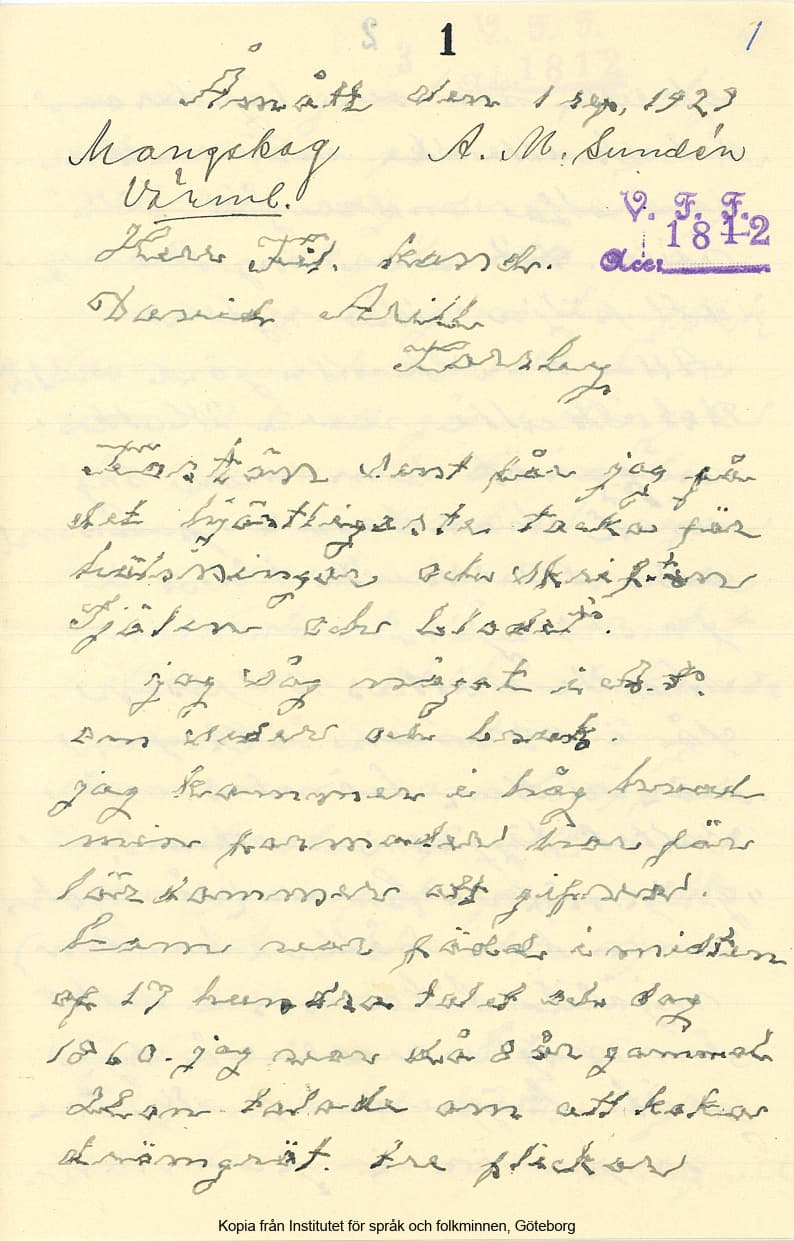 1
1
Åmått den 1 sep, 1923
Mangskog A. M. Sundén
Värml.
V. F. F.
1812
Acc:
Herr Fil. kand.
David Arill
Torsby
Fastän sent får jag på
det hjärtligaste tacka för
hälsningar och skriften
Själen och blodet.
jag såg något i N.V.T.
om seder och bruk.
jag kommer i håg hvad
min farmoder har för
lör dommer att gifva.
ham var född i midten
af 17 hundra talet och dog
1860. jag var då 8 år gammal
Hon talade om att koka
drömgröt. tre flickor
Kopia från Institutet för språk och folkminnen, Göteborg